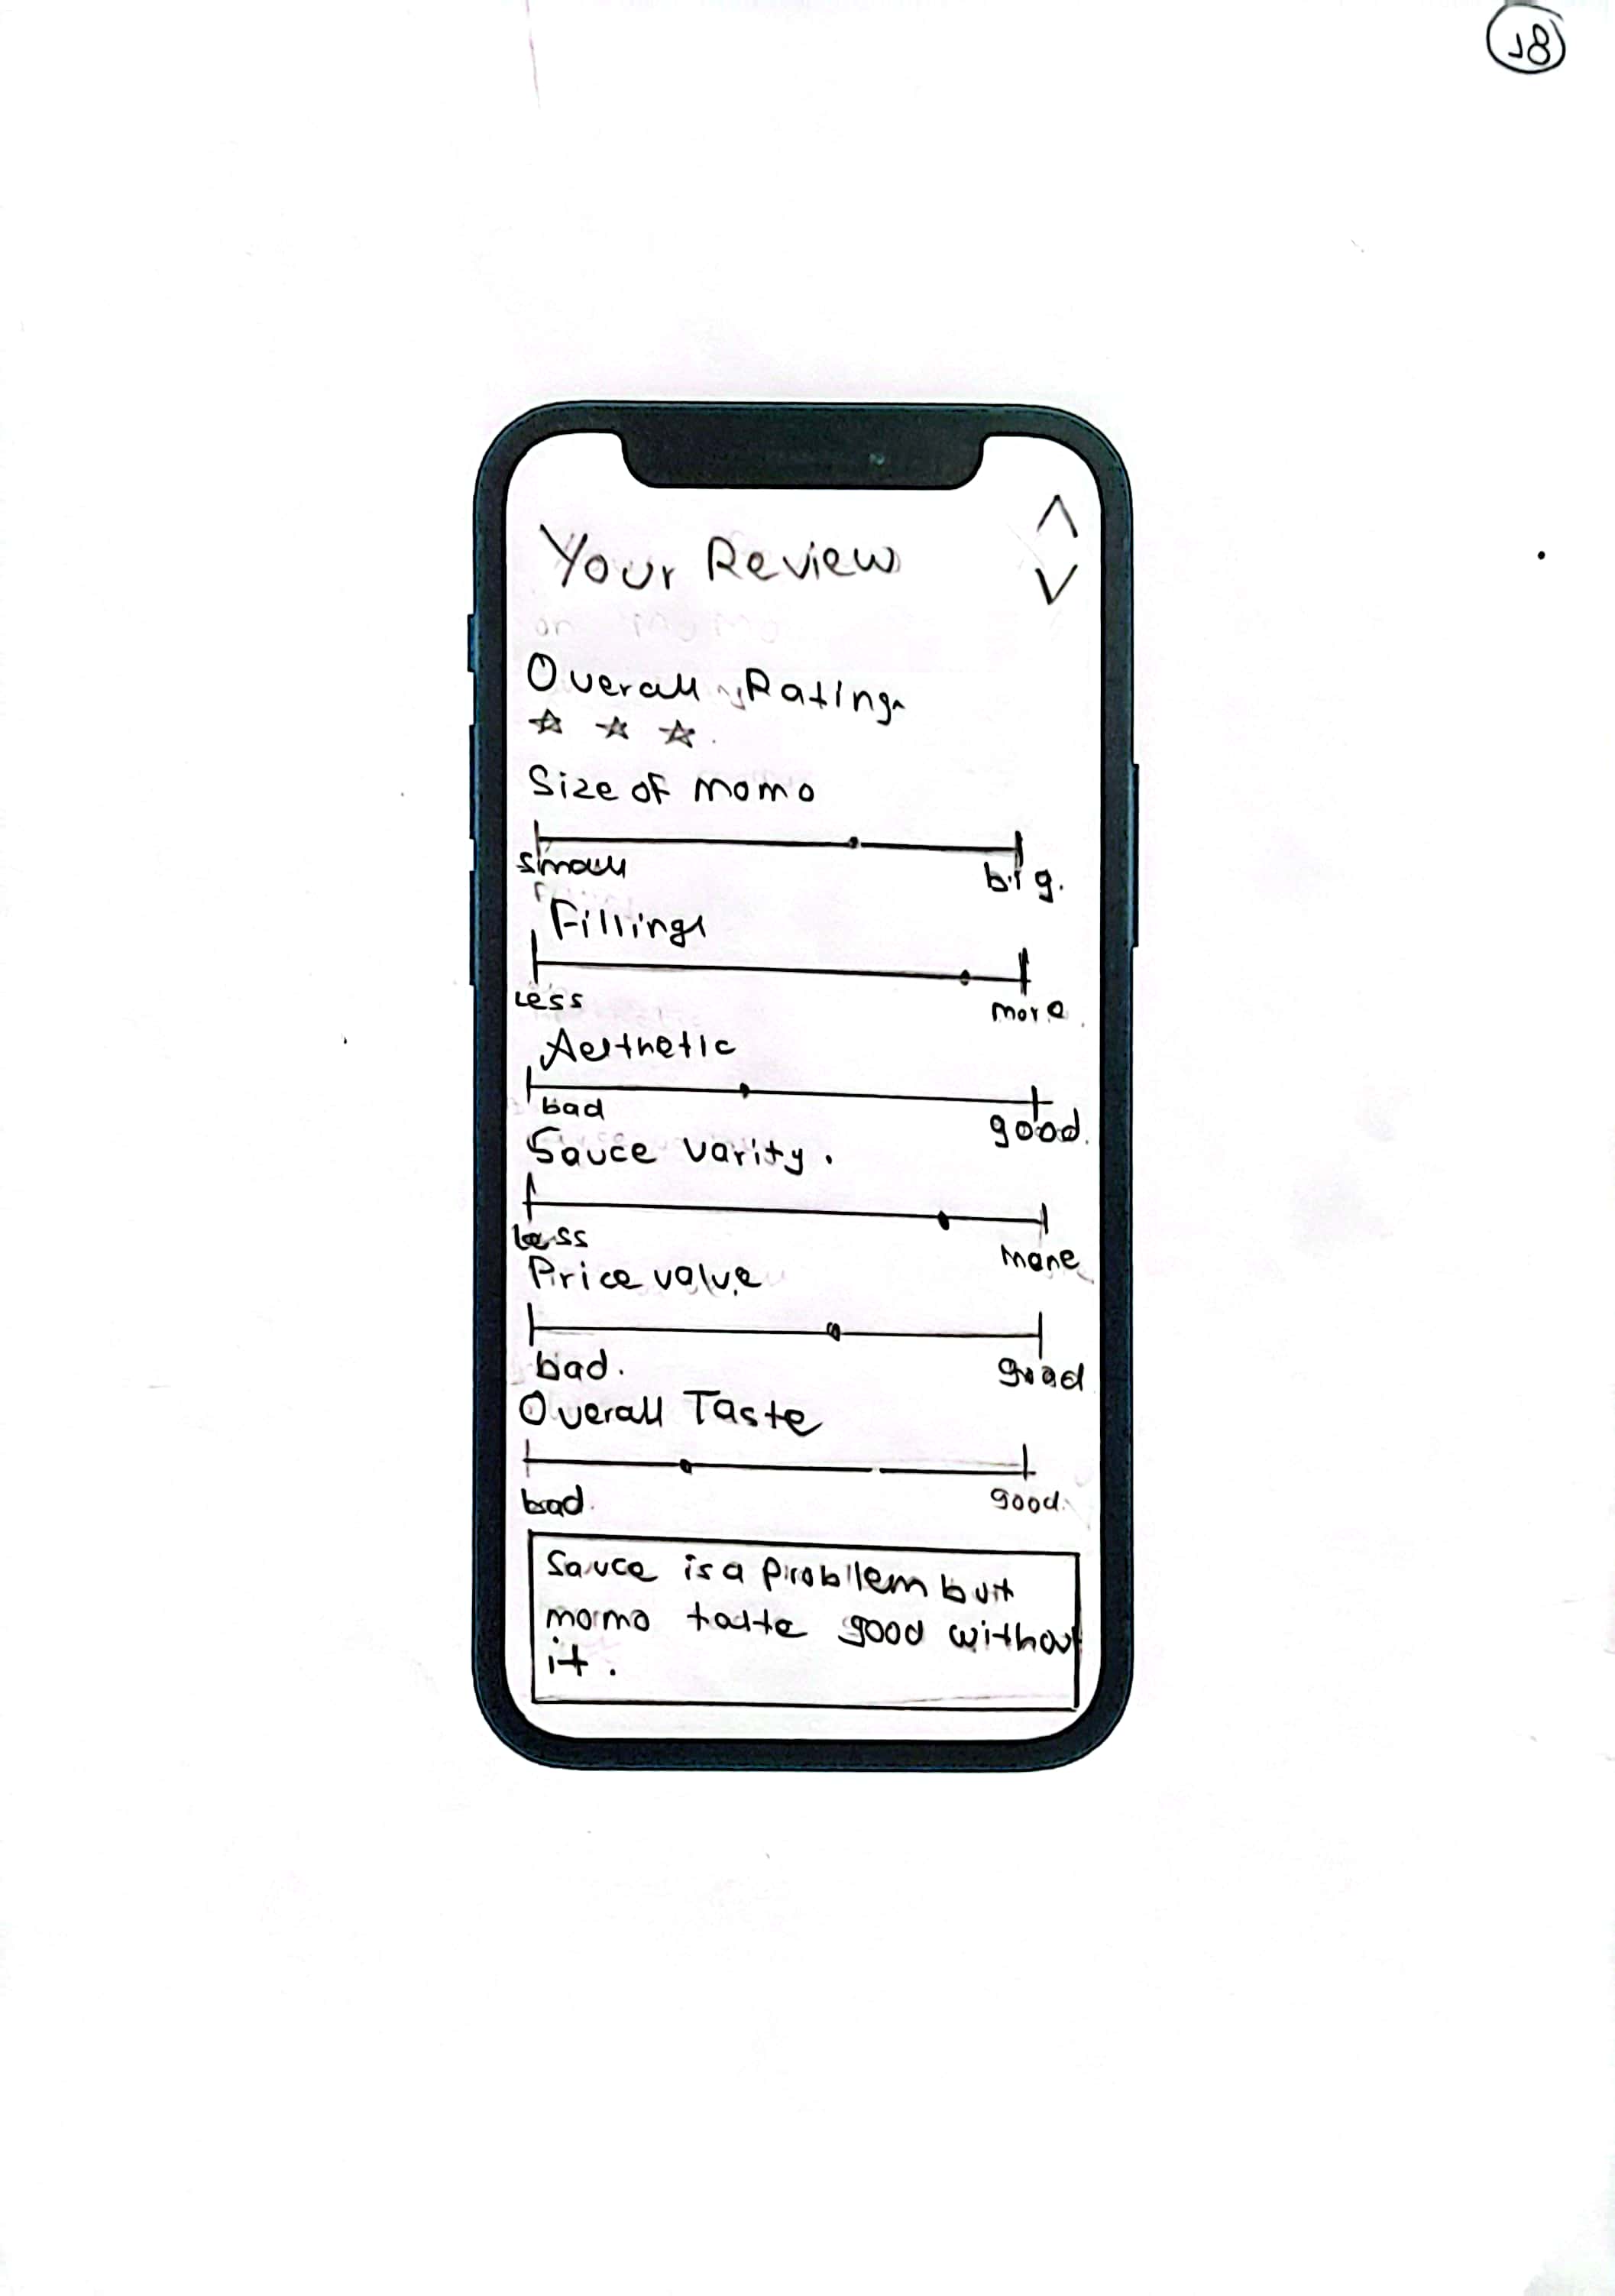 18
Your Review
Overall Rating
Size of momo
small
big.
Fillings
Less
more
Aesthetic
bad
good.
Sauce varity.
Less
more
Price value
bad.
good
Overall Taste
bad.
good.
Sauce is a problem but
momo taste good without
it.